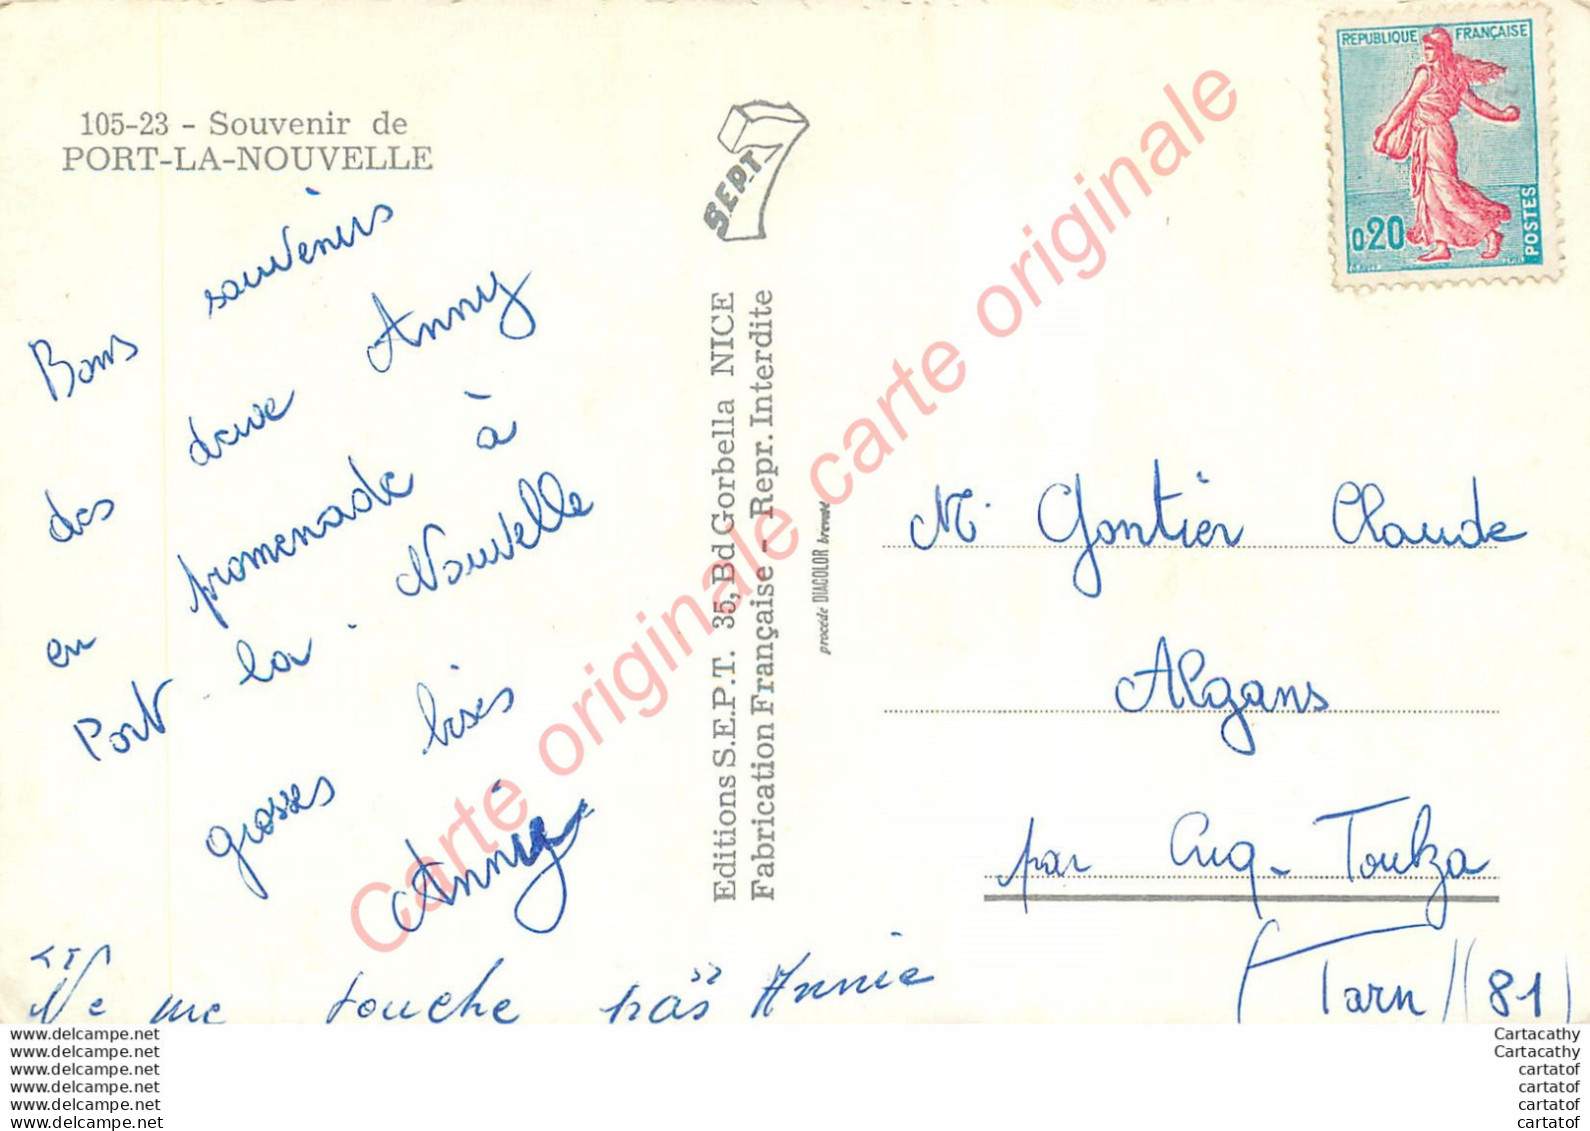 105-23 - Souvenir de
PORT-LA-NOUVELLE
Bons souvenirs
des deux Anny
en promenade à
Port-la-Nouvelle
grosses bises
Anny
"Ne me touche pas" Annie
S.E.P.T.
Editions S.E.P.T. 35, Bd Gorbella NICE
Fabrication Française - Repr. Interdite
procédé DIACOLOR breveté
REPUBLIQUE FRANÇAISE
0,20
POSTES
M. Gontier Claude
Algans
par Cuq-Toulza
(Tarn) (81)
Carte originale carte originale carte originale
www.delcampe.net
www.delcampe.net
www.delcampe.net
www.delcampe.net
www.delcampe.net
www.delcampe.net
Cartacathy
Cartacathy
cartatof
cartatof
cartatof
cartatof